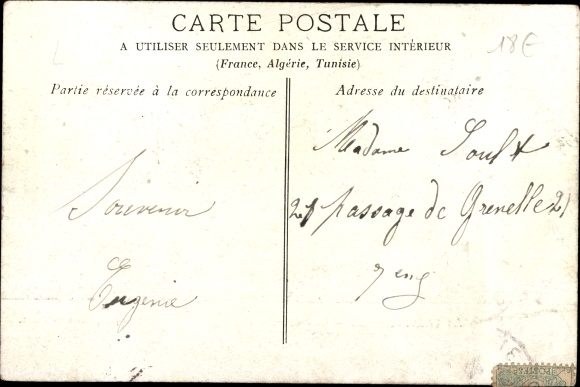 CARTE POSTALE
A UTILISER SEULEMENT DANS LE SERVICE INTÉRIEUR
(France, Algérie, Tunisie)
18€
Partie réservée à la correspondance
Souvenir
Eugenie
Adresse du destinataire
Madame Soult
21 passage de Grenelle 21
POSTES